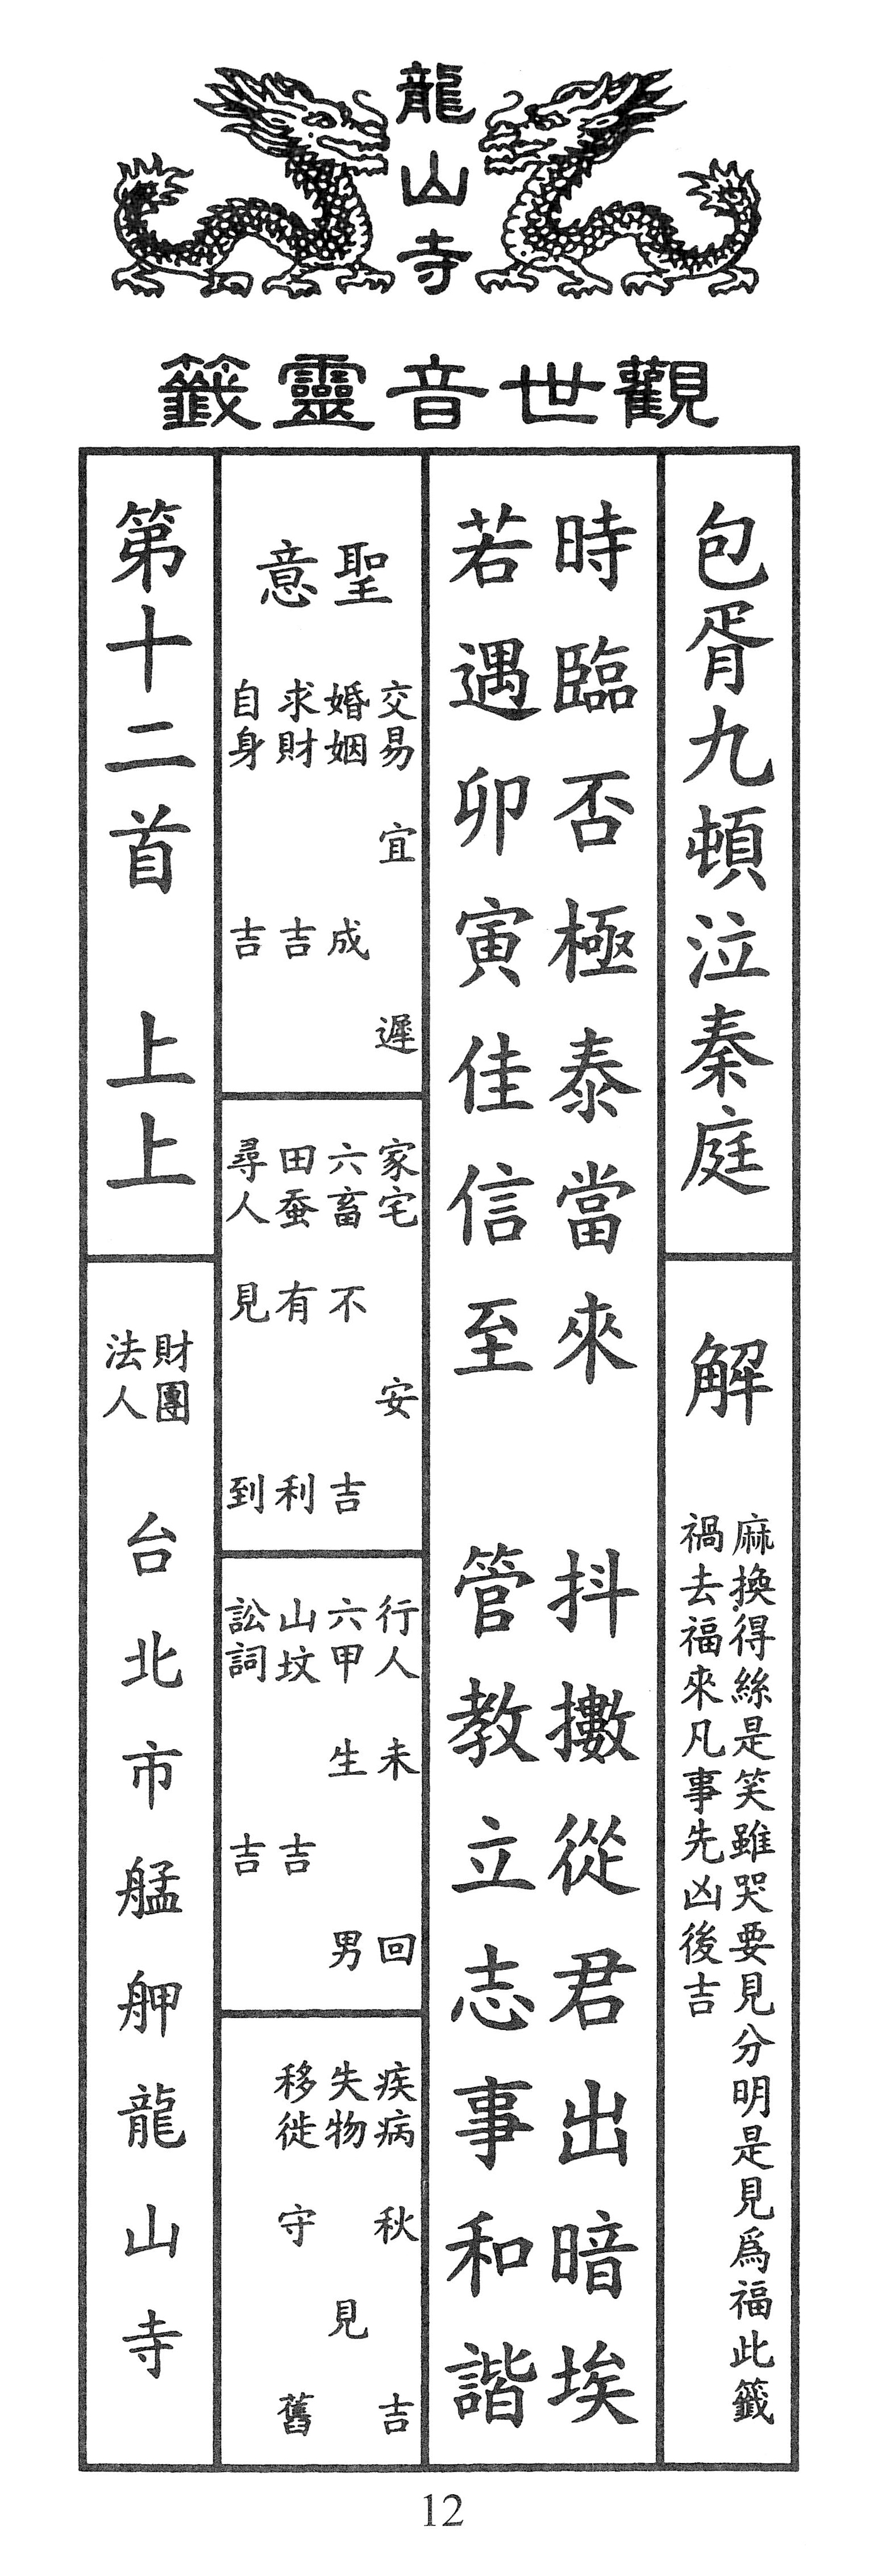 龍山寺
觀世音靈籤
包胥九頓泣秦庭
解
麻換得絲是笑雖哭要見分明是見爲福此籤
禍去福來凡事先凶後吉
時臨否極泰當來　抖擻從君出暗埃
若遇卯寅佳信至　管教立志事和諧
聖意
交易　宜遲
婚姻　成
求財　吉
自身　吉
家宅　安
六畜　不吉
田蚕　有利
尋人　見到
行人　未回
六甲　生男
山坟　吉
訟詞　吉
疾病　秋吉
失物　見
移徙　守舊
第十二首　上上
財團法人　台北市艋舺龍山寺
12